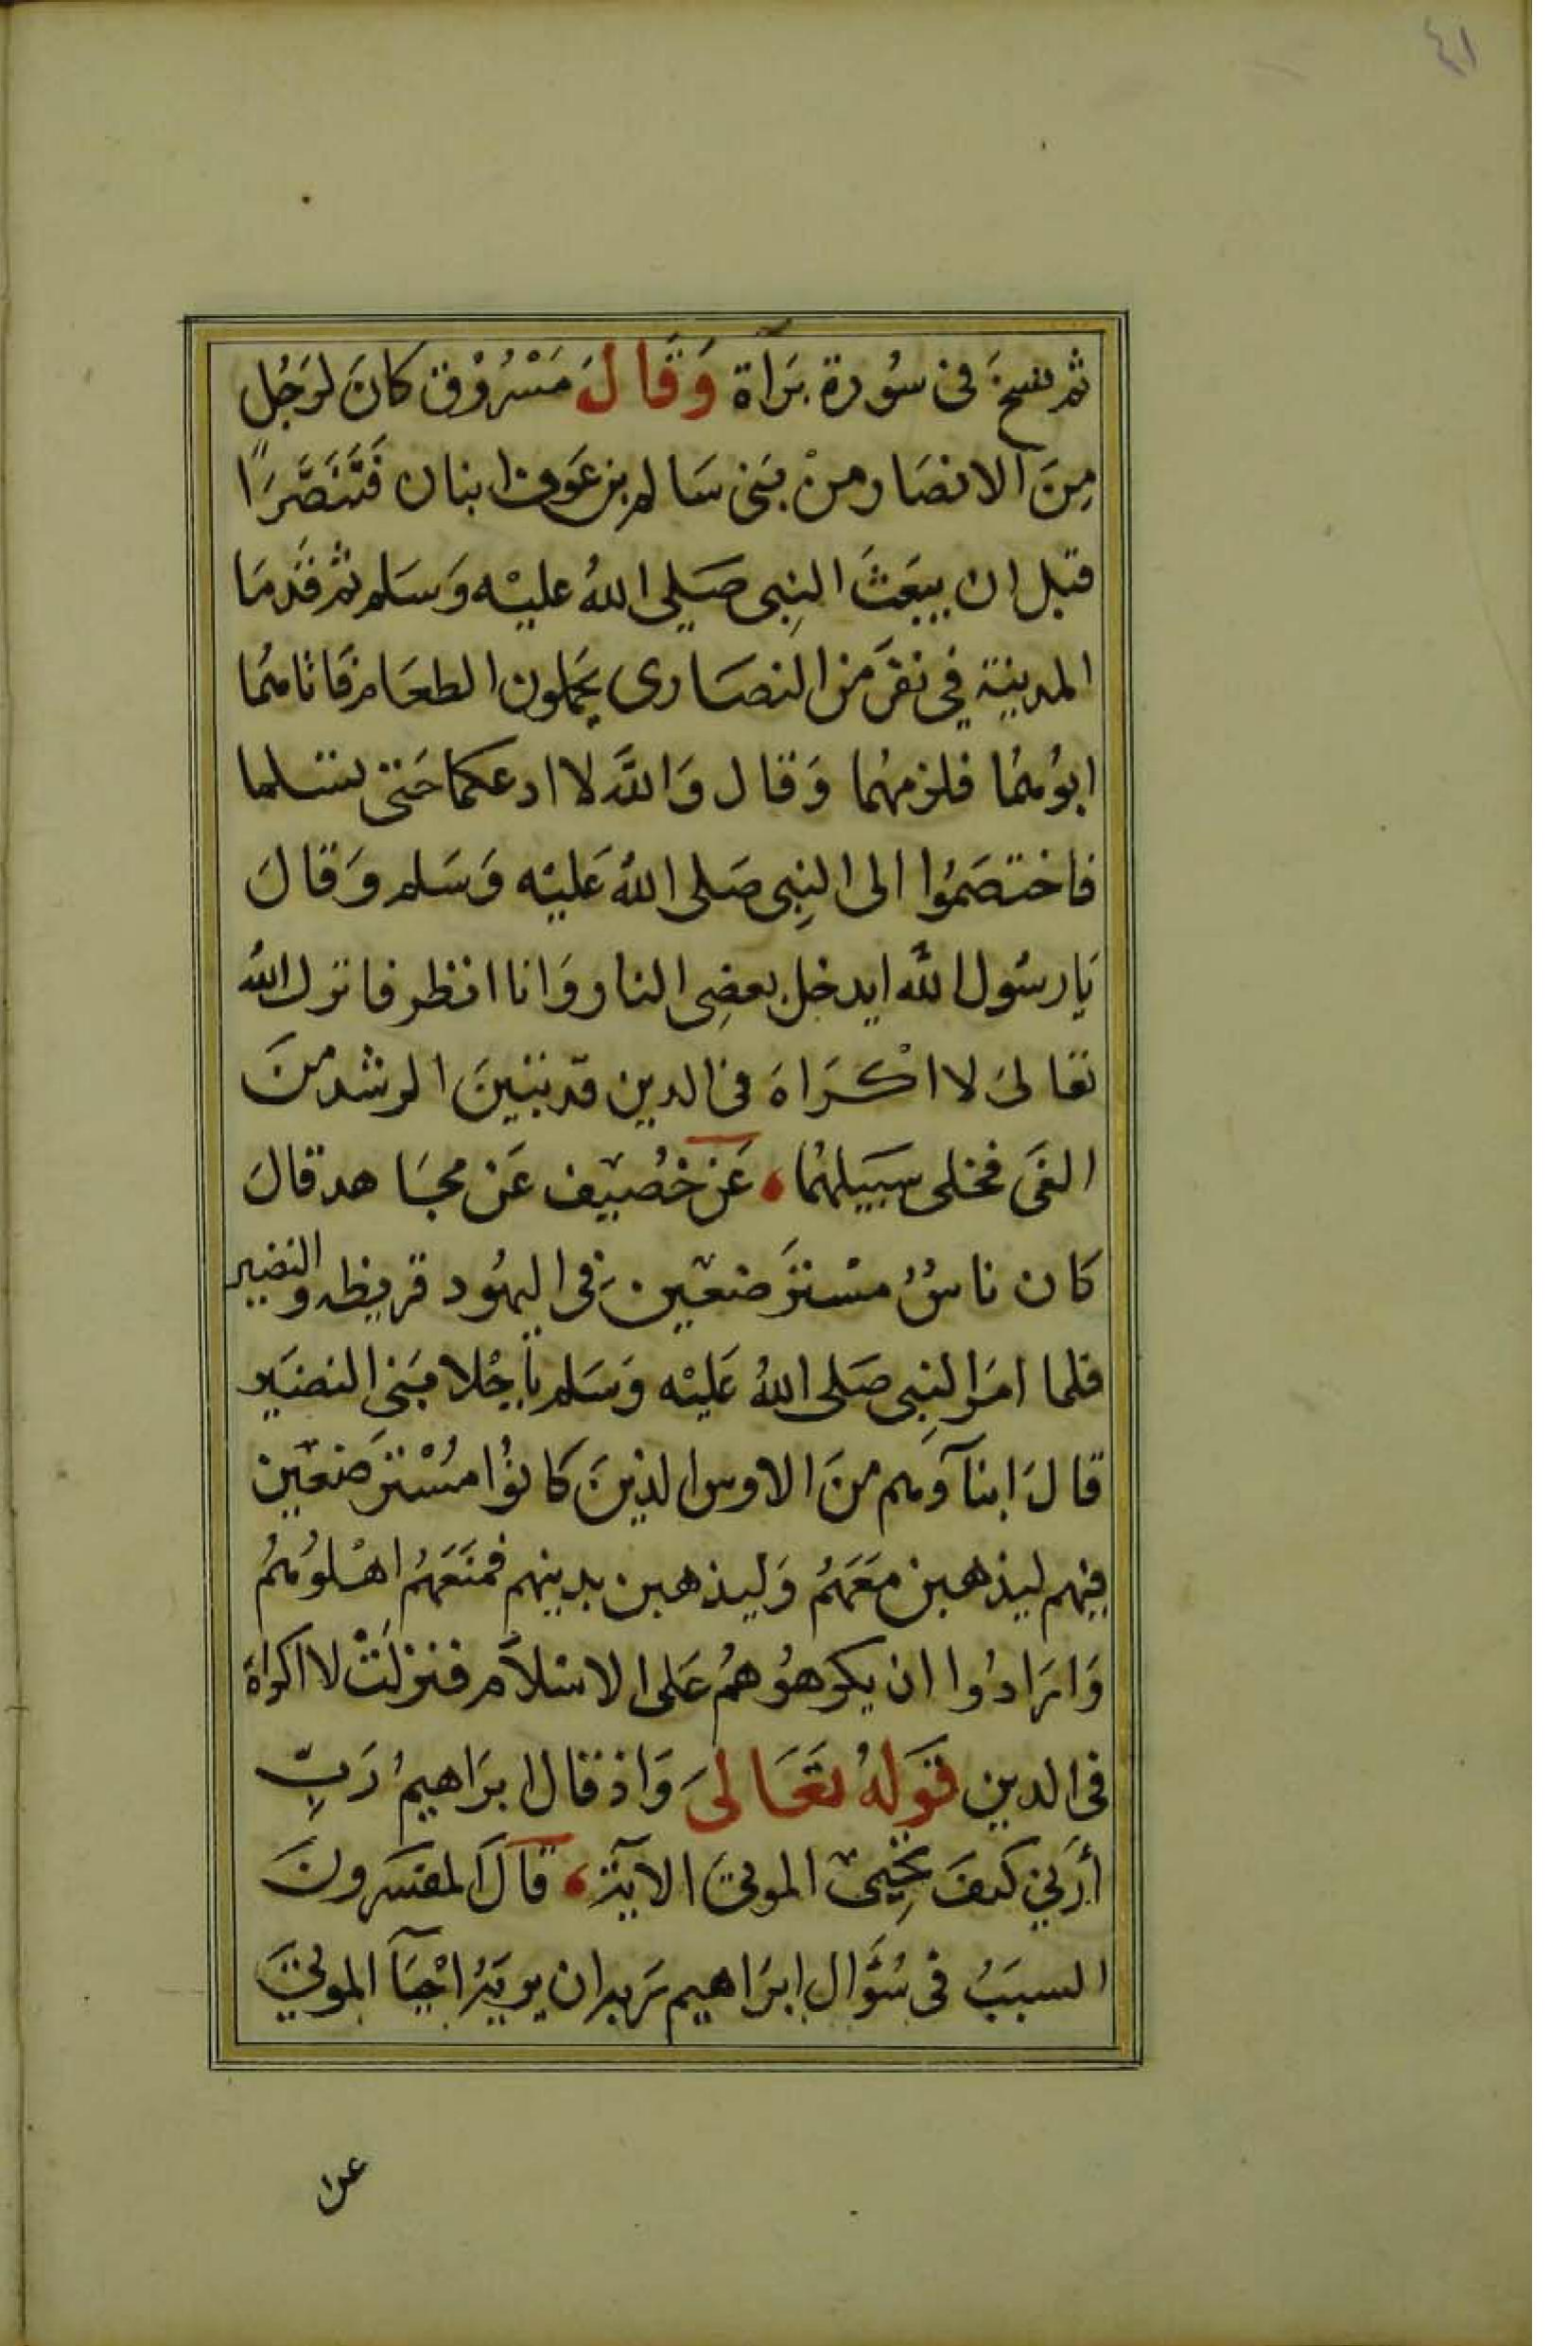 ٤١
ثم نسخ في سُورة بَرآة وَقَالَ مَسْرُوْق كانَ لرَجُل
مِنَ الانصَار منْ بَنى سَالم بن عَوف ابنان فَتَنَصَّرَا
قبل ان يبعَثَ النبِى صَلى اللهُ عليْه وَسَلم ثم قَدمَا
المدينة في نفر من النصَارى يحملون الطعَام فَاتاهمُا
ابوُهمُا فلزمهُما وَقال وَاللهَ لا ادعكما حَتى تسلما
فاختصَمُوا الى النبِى صَلى اللهُ عَليْه وَسَلم وَقالَ
يَا رسُول الله ايدخل بعضِى النار وَانا انظر فانزل اللهُ
تعَالىَ لا اكْرَاهَ فى الدين قد تبينَ الرشد منَ
الغى فخلى سَبيلهُما ، عَن خُصَيف عَن مجَاهد قالَ
كان ناسٌ مسْترَضعين في اليهُود قريظه والنضير
فلما امرَ النبِى صَلى اللهُ عَليْه وَسَلم بأجْلا بَنى النضَير
قالَ ابنآومم منَ الاوس الذينَ كانوُا مسُْترَضعين
فيهم ليذهبن معَهمُ وَليذهبن بدينهم فمنعَهمُ اهْلوُهمُ
وَارَادُوا ان يكرهوُهمُ عَلى الاسْلاَم فنزلَتْ لا اكراهَ
فى الدين قوَلهُ تعَالىَ وَاذ قال ابرَاهيمُ رَبِّ
أرَني كيفَ تحُيى الموتىَ الآية ، قالَ المفسَرونَ
السببَُ فى سُؤَال ابرَاهيم رَبه ان يريَهُ احْيآَ الموتىَ
عن